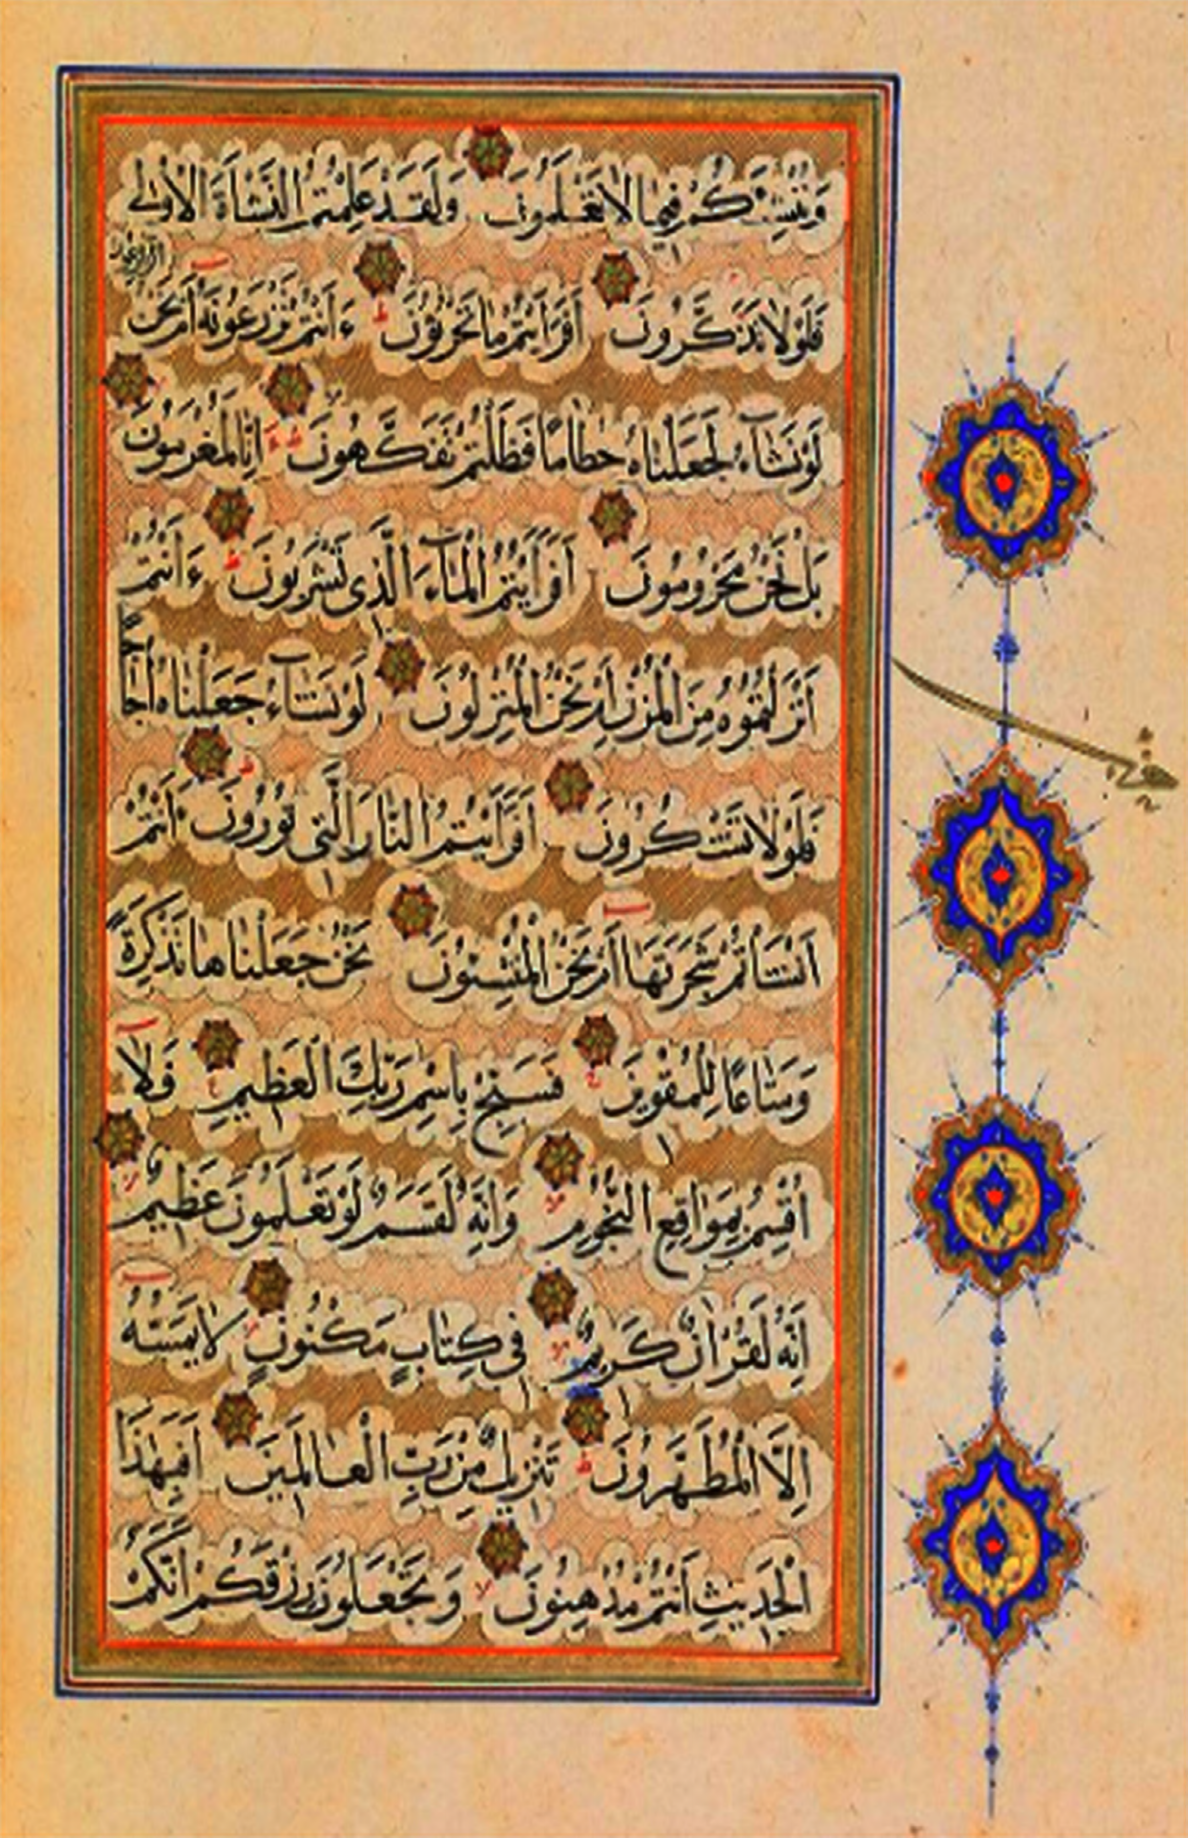 وَنُنْشِئَكُمْ فِيمَا لَا تَعْلَمُونَ وَلَقَدْ عَلِمْتُمُ النَّشْأَةَ الْأُولَى
فَلَوْلَا تَذَكَّرُونَ أَفَرَأَيْتُمْ مَا تَحْرُثُونَ ءَأَنْتُمْ تَزْرَعُونَهُ أَمْ نَحْنُ
الزَّارِعُونَ
لَوْ نَشَآءُ لَجَعَلْنَاهُ حُطَامًا فَظَلْتُمْ تَفَكَّهُونَ إِنَّا لَمُغْرَمُونَ
بَلْ نَحْنُ مَحْرُومُونَ أَفَرَأَيْتُمُ الْمَآءَ الَّذِي تَشْرَبُونَ ءَأَنْتُمْ
أَنْزَلْتُمُوهُ مِنَ الْمُزْنِ أَمْ نَحْنُ الْمُنْزِلُونَ لَوْ نَشَآءُ جَعَلْنَاهُ أُجَاجًا
فَلَوْلَا تَشْكُرُونَ أَفَرَأَيْتُمُ النَّارَ الَّتِي تُورُونَ ءَأَنْتُمْ
أَنْشَأْتُمْ شَجَرَتَهَا أَمْ نَحْنُ الْمُنْشِئُونَ نَحْنُ جَعَلْنَاهَا تَذْكِرَةً
وَمَتَاعًا لِلْمُقْوِينَ فَسَبِّحْ بِاسْمِ رَبِّكَ الْعَظِيمِ فَلَا
أُقْسِمُ بِمَوَاقِعِ النُّجُومِ وَإِنَّهُ لَقَسَمٌ لَوْ تَعْلَمُونَ عَظِيمٌ
إِنَّهُ لَقُرْآنٌ كَرِيمٌ فِي كِتَابٍ مَكْنُونٍ لَا يَمَسُّهُ
إِلَّا الْمُطَهَّرُونَ تَنْزِيلٌ مِنْ رَبِّ الْعَالَمِينَ أَفَبِهَذَا
الْحَدِيثِ أَنْتُمْ مُدْهِنُونَ وَتَجْعَلُونَ رِزْقَكُمْ أَنَّكُمْ